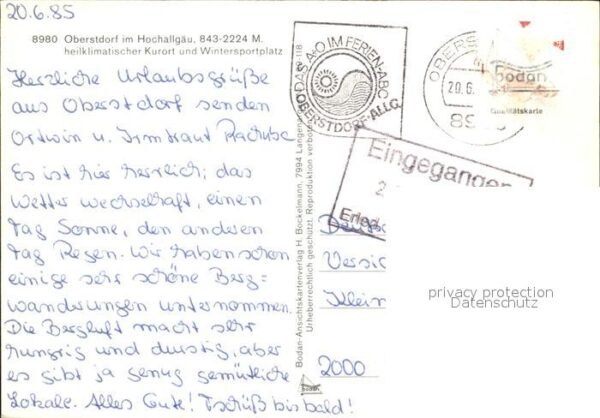 20.6.85
8980 Oberstdorf im Hochallgäu, 843-2224 M.
heilklimatischer Kurort und Wintersportplatz
Herzliche Urlaubsgrüße
aus Oberstdorf senden
Ortwin u. Irmtraut
Es ist hier herrlich; das
Wetter wechselhaft, einen
Tag Sonne, den anderen
Tag Regen. Wir haben schon
einige sehr schöne Berg=
wanderungen unternommen.
Die Bergluft macht sehr
hungrig und durstig, aber
es gibt ja genug gemütliche
Lokale. Alles Gute! Tschüß bis bald!
118
Bodan-Ansichtskartenverlag H. Bockelmann, 7994 Langen
Urheberrechtlich geschützt. Reproduktion verboten
DAS A+O IM FERIEN-ABC
OBERSTDORF-ALLG.
OBERS
20.6.
89
bodan
Qualitätskarte
Eingegangen
2
Erled
Versic
Klein
2000
privacy protection
Datenschutz
bodan